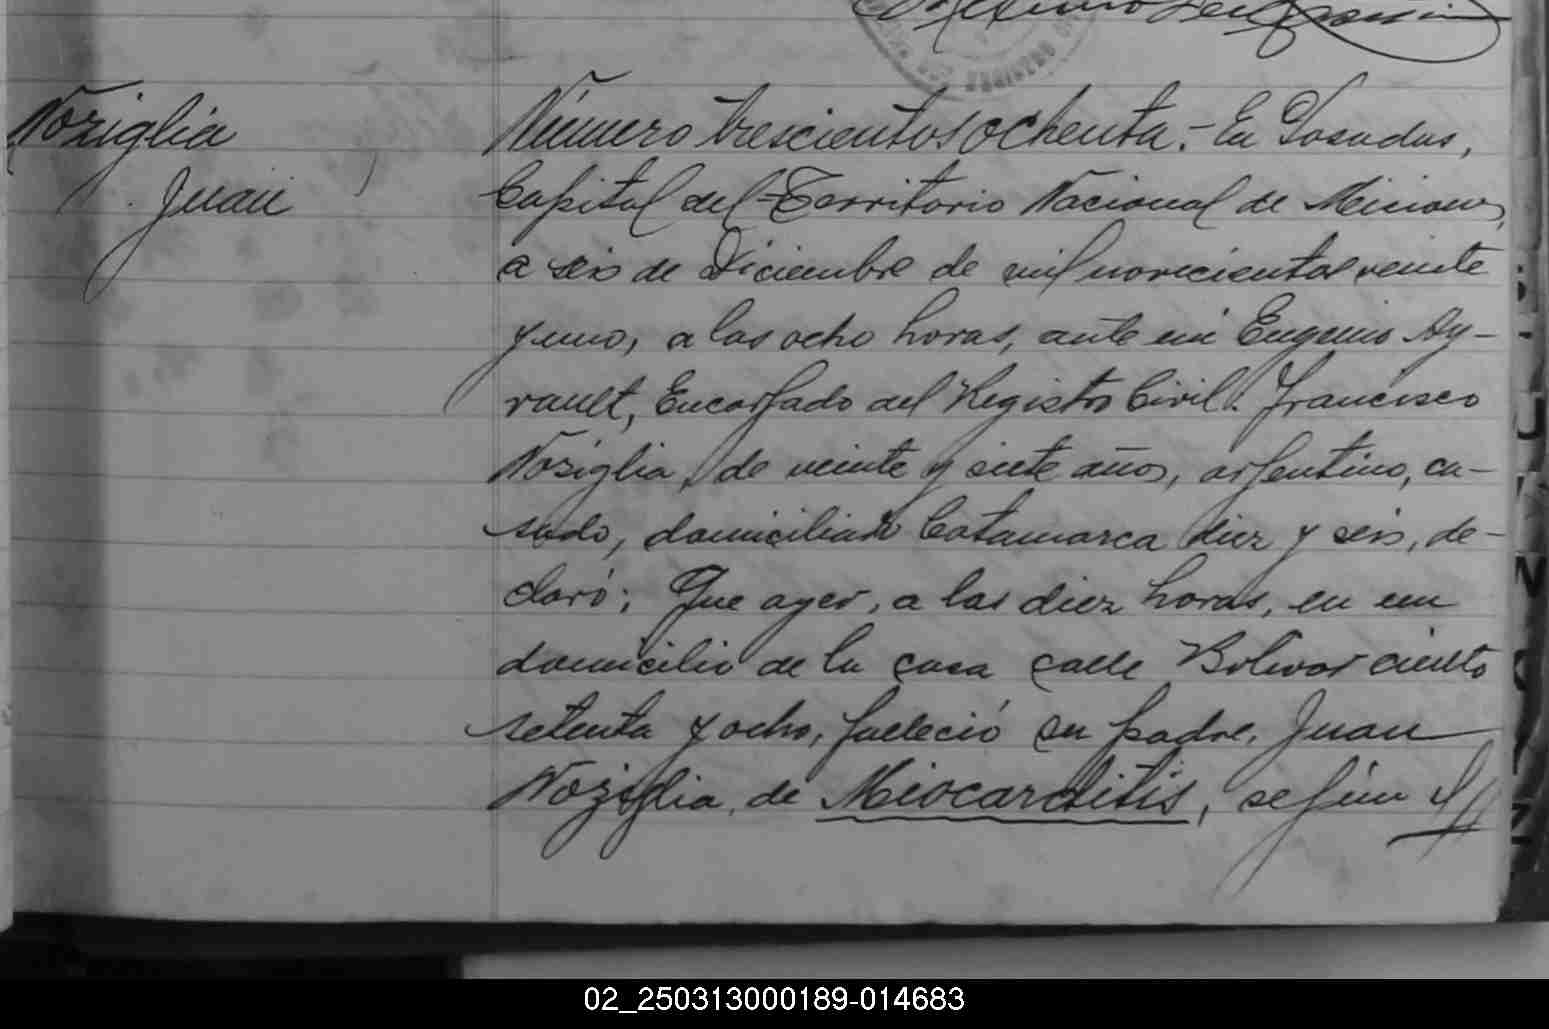 Noziglia
Juan
Número trescientos ochenta.- En Posadas,
Capital del Territorio Nacional de Misiones,
a seis de Diciembre de mil novecientos veinte
y uno, a las ocho horas, ante mi Eugenio Ay-
rault, Encargado del Registro Civil. Francisco
Noziglia, de veinte y siete años, argentino, ca-
sado, domiciliado Catamarca diez y seis, de-
claró; Que ayer, a las diez horas, en su
domicilio de la casa calle Bolivar ciento
setenta y ocho, falleció su padre, Juan
Noziglia, de Miocarditis, según
02_250313000189-014683